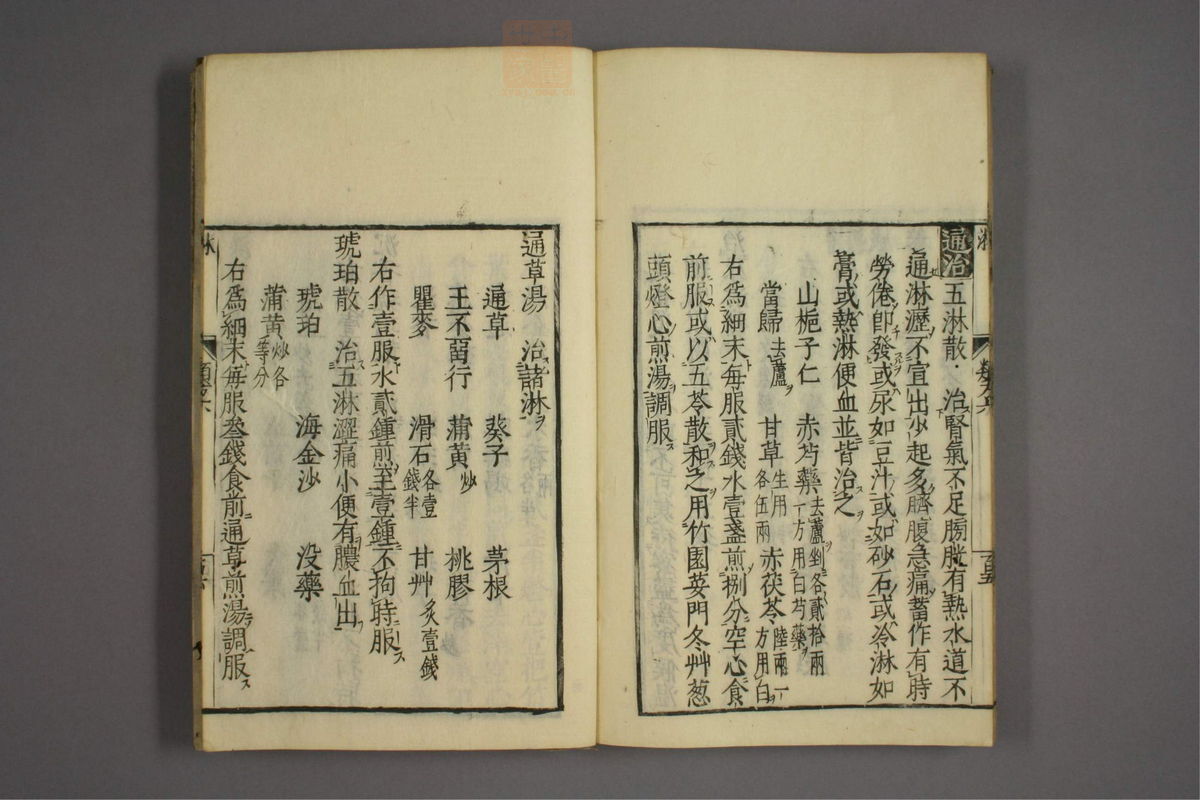 通治 五淋散 治腎氣不足膀胱有熱水道不
通淋瀝不宜出少起多臍腹急痛蓄作有時
勞倦即發或尿如豆汁或如砂石或冷淋如
膏或熱淋便血並皆治之
山梔子仁 赤芍藥去蘆剉各貳拾兩一方用白芍藥
當歸去蘆 甘草生用各伍兩 赤茯苓陸兩一方用白
右爲細末每服貳錢水壹盞煎捌分空心食
前服或以五苓散和之用竹園荽門冬艸葱
頭燈心煎湯調服
通草湯 治諸淋
通草 葵子 茅根
王不留行 蒲黄炒 桃膠
瞿麥 滑石各壹錢半 甘艸炙壹錢
右作壹服水貳鍾煎至壹鍾不拘時服
琥珀散 治五淋澀痛小便有膿血出
琥珀 海金沙 没藥
蒲黄炒各等分
右爲細末每服叁錢食前通草煎湯調服